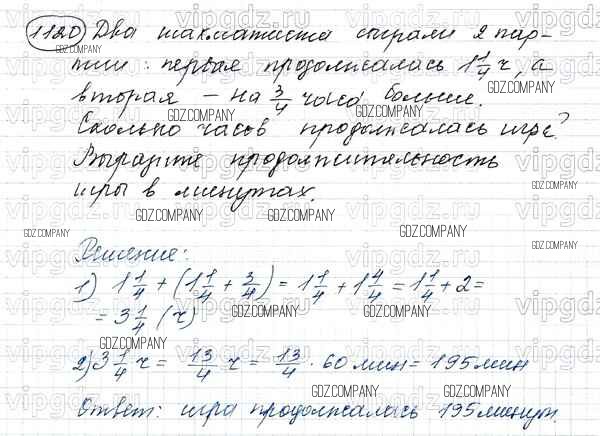 1120) Два шахматиста сыграли 2 пар-
тии: первая продолжалась 1 1/4 ч, а
вторая – на 3/4 часа больше.
Сколько часов продолжалась игра?
Выразите продолжительность
игры в минутах.
Решение:
1) 1 1/4 + (1 1/4 + 3/4) = 1 1/4 + 1 4/4 = 1 1/4 + 2 =
= 3 1/4 (ч)
2) 3 1/4 ч = 13/4 ч = 13/4 · 60 мин = 195 мин
Ответ: игра продолжалась 195 минут.
vipgdz.ru
GDZ.COMPANY